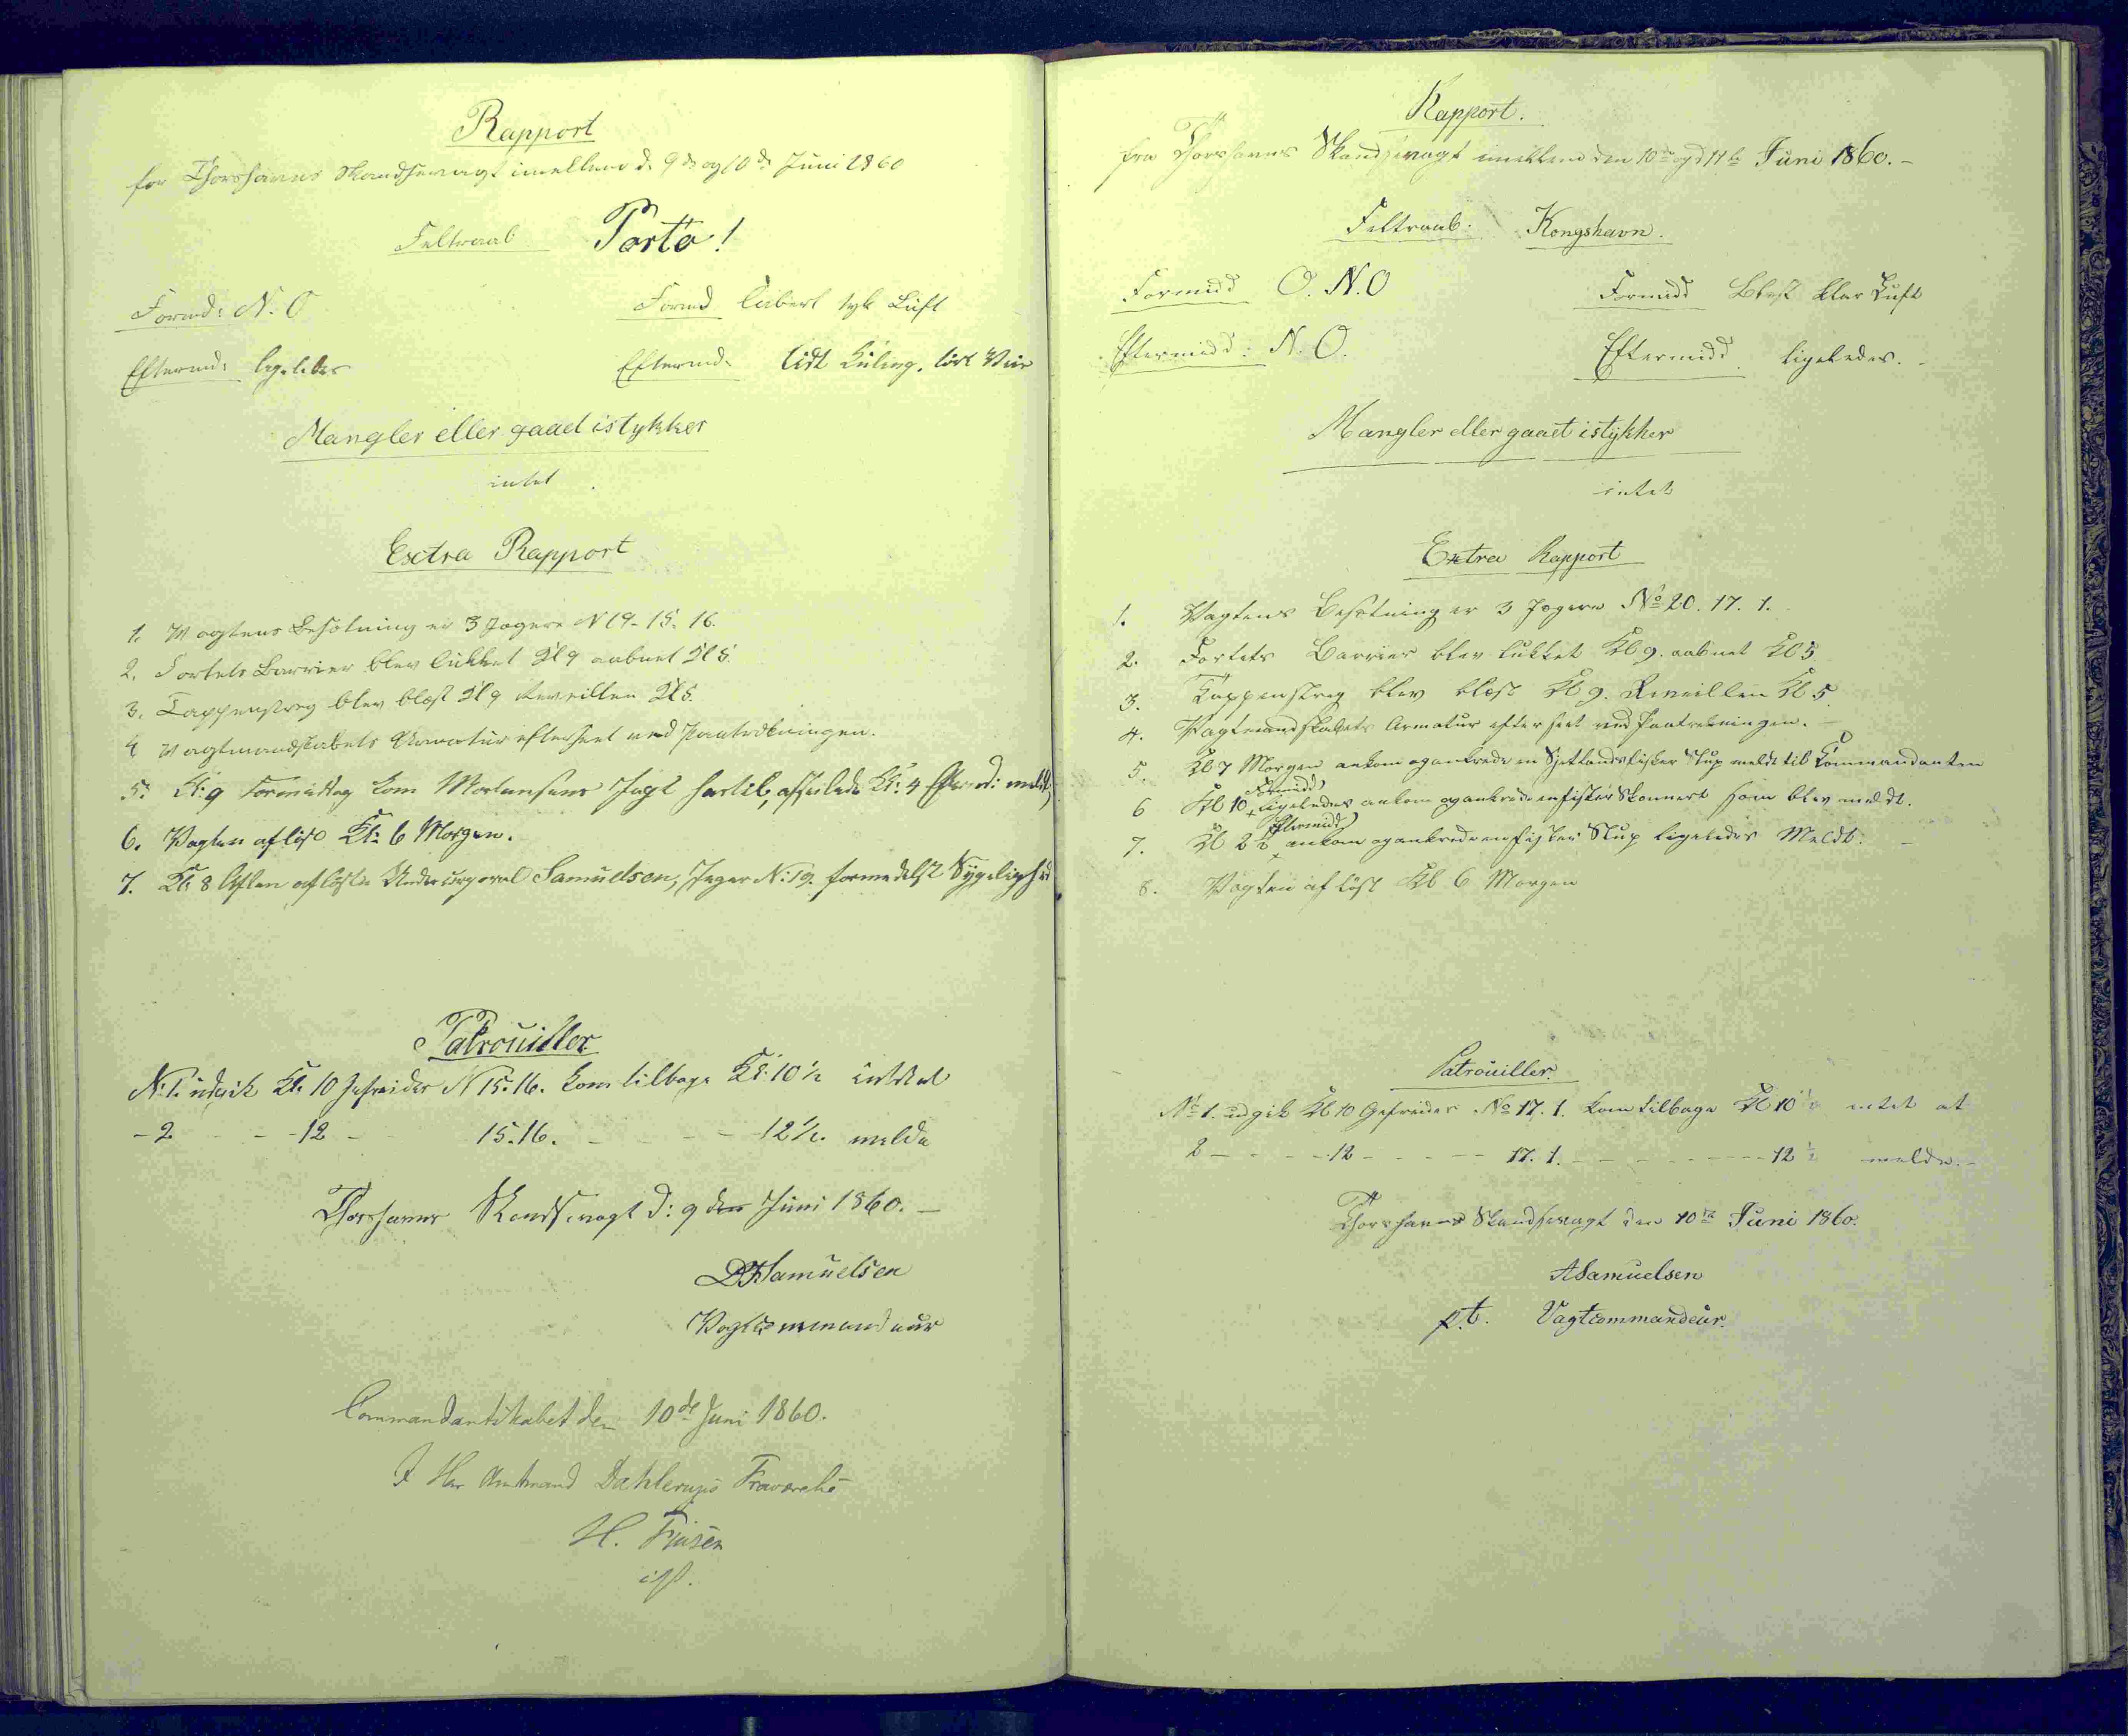 Rapport
for Thorshavns Skandsevagt imellem d. 9de og 10de Juni 1860
Feltraab Porto!
Formd: N. O Formd Labert tyk Luft
Eftermd: ligeledes Eftermd. Lidt Kuling, tört Veir
Mangler eller gaaet istykker
intet
Exctra Rapport
1. Vagtens Besætning er 3 Jægere N 19. 15. 16.
2. Fortets Barrier blev lukket Kl 9 aabnet Kl 5.
3. Tappenstreg blev blæst Kl 9 Reveillen Kl 5.
4 Vagtmandskabets Armatur efterseet ved Paatrækningen.
5. Kl: 9 Formiddag kom Mortensens Jagt hertil, afseilede Kl: 4 Eftermd: meldt,
6. Vagten aflöst Kl: 6 Morgen.
7. Kl: 8 Aften aflöste Undercorporal Samuelsen, Jæger N: 19. formedelst Sygelighed
Patrouiller
N: 1. udgik Kl. 10 Gefreider N 15. 16. kom tilbage Kl: 10½ intet at
- 2 - - 12 - 15. 16. - - - - 12½. melde
Thorshavns Skandsevagt d: 9den Juni 1860. -
Samuelsen
Vagtcommandeur
Commandantskabet den 10de Juni 1860.
I Hr Amtmand Dahlerups Fraværelse
H. Finsen
cst.
Rapport.
fra Thorshavns Skandsevagt imellem den 10de og d 11te Juni 1860. -
Feltraab: Kongshavn.
Formidd O. N. O Formidd Blæst klar Luft
Eftermidd: N. O. Eftermidd ligeledes. -
Mangler eller gaaet istykker
intet
Extra Rapport
1. Vagtens Besætning er 3 Jægere No 20. 17. 1.
2. Fortets Barrier blev lukket Kl 9. aabnet Kl 5
3. Tappenstreg blev blæst Kl 9. Reveillen Kl 5.
4. Vagtmandskabets Armatur efterseet ved Paatrækningen. -
5. Kl 7 Morgen ankom og ankrede en Sjetlandsfisker Slup meldt til Kommandanten
Formidd
6 Kl 10 + ligeledes ankom og ankrede en fisker Skonnert som blev meldt.
Eftermidd
7. Kl 2½ + ankom og ankrede en fisker Slup ligeledes Meldt. -
8. Vagten aflöst Kl 6 Morgen
Patrouiller.
No 1. udgik Kl 10 Gefreider No 17. 1. kom tilbage Kl 10½ intet at
2 - - - - 12 - - - - - 17. 1. - - - - - - - - 12½ melde. -
Thorshavns Skandsevagt den 10de Juni 1860.
ASamuelsen
p.t. Vagtcommandeur.